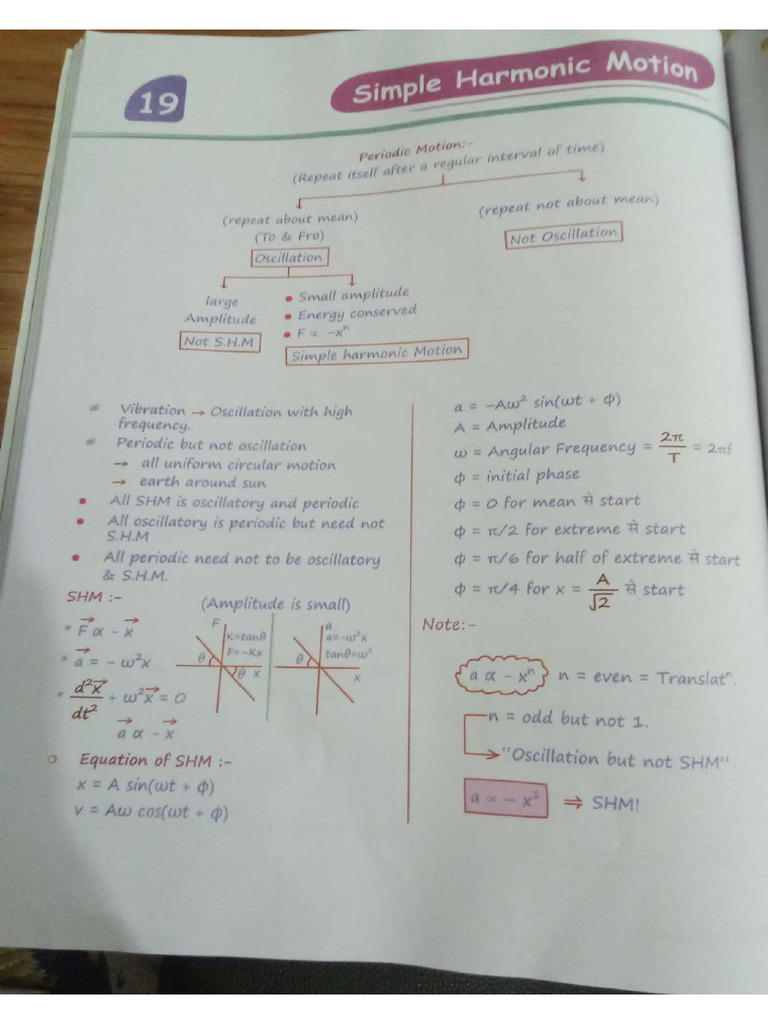 19
Simple Harmonic Motion
Periodic Motion:-
(Repeat itself after a regular interval of time)
(repeat about mean)
(To & Fro)
Oscillation
(repeat not about mean)
Not Oscillation
large
Amplitude
Not S.H.M
• Small amplitude
• Energy conserved
• F ∝ -xⁿ
Simple harmonic Motion
# Vibration → Oscillation with high
frequency.
# Periodic but not oscillation
→ all uniform circular motion
→ earth around sun
• All SHM is oscillatory and periodic
• All oscillatory is periodic but need not
S.H.M
• All periodic need not to be oscillatory
& S.H.M.
SHM :-
(Amplitude is small)
* F⃗ α - x⃗
* a⃗ = - ω²x
* d²x⃗/dt² + ω²x⃗ = 0
a⃗ α - x⃗
F
K=tanθ
F=-Kx
θ
θ
x
a
a=-ω²x
tanθ=ω²
θ
x
○ Equation of SHM :-
x = A sin(ωt + ϕ)
v = Aω cos(ωt + ϕ)
a = -Aω² sin(ωt + ϕ)
A = Amplitude
ω = Angular Frequency = 2π/T = 2πf
ϕ = initial phase
ϕ = 0 for mean से start
ϕ = π/2 for extreme से start
ϕ = π/6 for half of extreme से start
ϕ = π/4 for x = A/√2 से start
Note:-
a α - xⁿ n = even = Translatⁿ.
n = odd but not 1.
→ "Oscillation but not SHM"
a ∝ - x¹ ⇒ SHM!